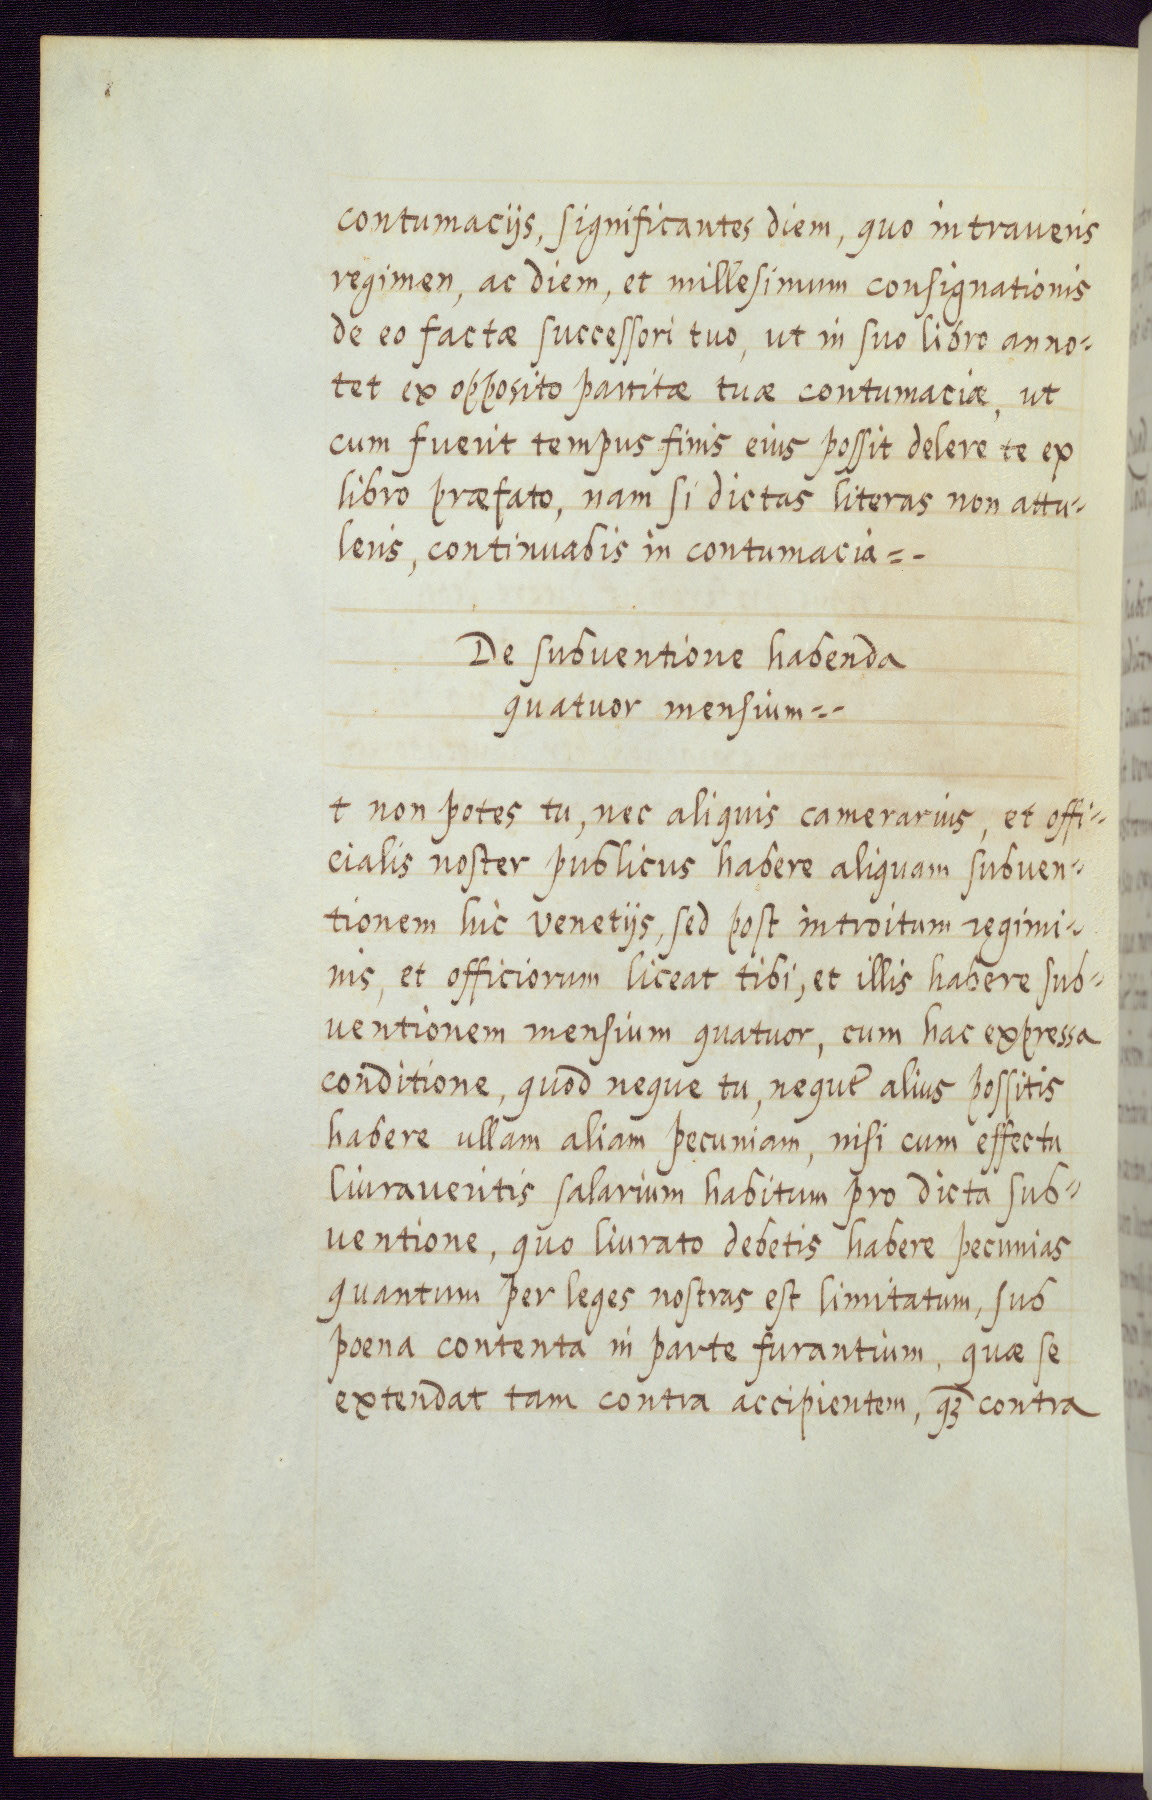 contumacijs, significantes diem, quo intraveris
regimen, ac diem, et millesimum consignationis
de eo factæ successori tuo, ut in suo libro anno=
tet ex opposito partitæ tuæ contumaciæ, ut
cum fuerit tempus finis eius possit delere te ex
libro præfato, nam si dictas literas non attu=
leris, continuabis in contumacia=-
De subventione habenda
quatuor mensium=-
t non potes tu, nec aliquis camerarius, et offi=
cialis noster publicus habere aliquam subven=
tionem hìc Venetijs, sed post introitum regimi=
nis, et officiorum liceat tibi, et illis habere sub=
ventionem mensium quatuor, cum hac expressa
conditione, quod neque tu, neque alius possitis
habere ullam aliam pecuniam, nisi cum effectu
livraveritis salarium habitum pro dicta sub=
ventione, quo livrato debetis habere pecunias
quantum per leges nostras est limitatum, sub
poena contenta in parte furantium, quæ se
extendat tam contra accipientem, qꝫ contra